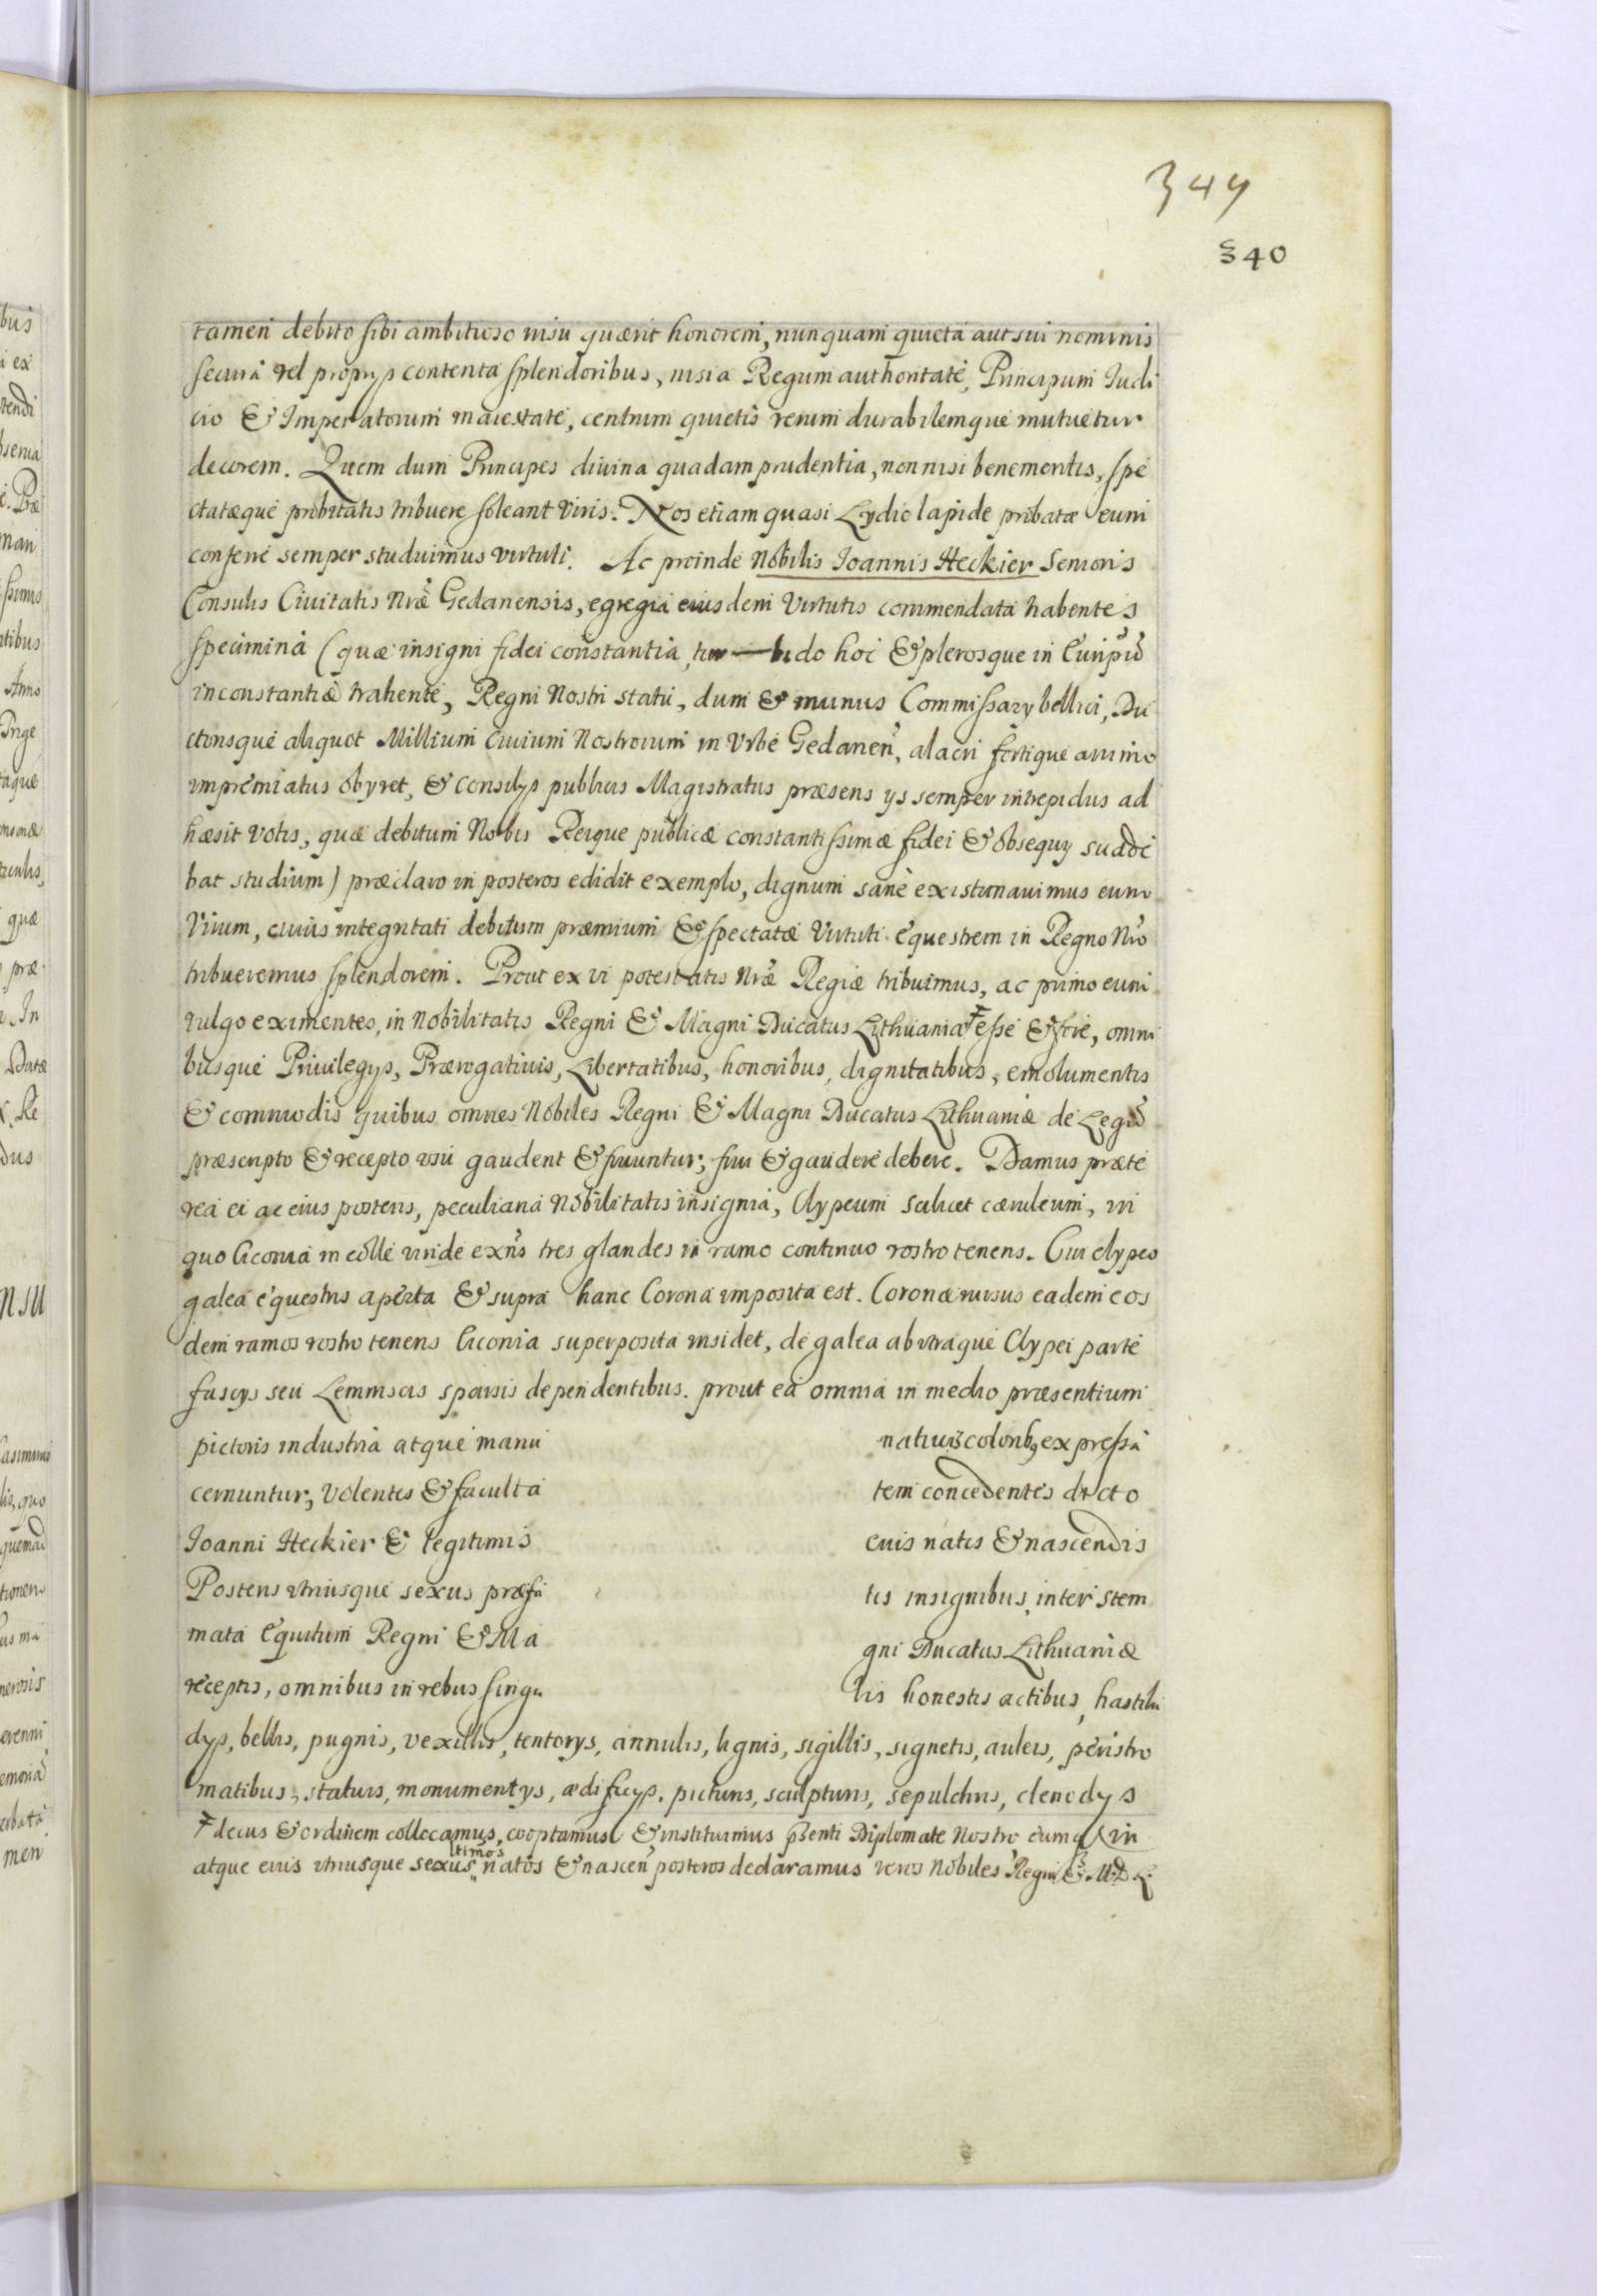 349
340
tamen debito sibi ambitioso nisu quærit honorem, nunquam quieta aut sui nominis
secura vel proprijs contenta splendoribus, nisi a Regum authoritate, Principum Iudi
cio & Imperatorum maiestate, centrum quietis rerum durabilemque mutuetur
decorem. Quem dum Principes divina quadam prudentia, nonnisi benemeritis, spe
ctatæque probitatis tribuere soleant viris. Nos etiam quasi Lydio lapide probatæ eum
conferre semper studuimus virtuti. Ac proinde Nobilis Ioannis Heckier Senioris
Consulis Civitatis Nræ Gedanensis, egregia eiusdem Virtutis commendata habentes
specimina (quæ insigni fidei constantia, bido hoc & plerosque in Euripũ
inconstantiæ trahente, Regni Nostri statu, dum & munus Commissarij bellici, Du
ctorisque aliquot Millium Civium Nostrorum in Urbe Gedanen, alacri fortique animo
impræmiatus obyret, & consilijs publicis Magistratus præsens ijs semper intrepidus ad
hæsit votis, quæ debitum Nobis Reique publicæ constantissimæ fidei & obsequij suade
bat studium) præclaro in posteros edidit exemplo, dignum sanè existimavimus eum
Virum, cuius integritati debitum præmium & spectatæ Virtuti equestrem in Regno Nro
tribueremus splendorem. Prout ex vi potestatis Nræ Regiæ tribuimus, ac primo eum
vulgo eximentes, in Nobilitatis Regni & Magni Ducatus Lithuaniæ ꝉ esse & fore, omni
busque Privilegijs, Prærogativis, Libertatibus, honoribus, dignitatibus, emolumentis
& commodis quibus omnes Nobiles Regni & Magni Ducatus Lithuaniæ de Legũ
præscripto & recepto usu gaudent & fruuntur; frui & gaudere debere. Damus præte
rea ei ac eius posteris, peculiaria Nobilitatis insignia, Clypeum scilicet cæruleum, in
quo Ciconia in colle viride exñs tres glandes in ramo continuo rostro tenens. Cui clypeo
galea equestris aperta & supra hanc Corona imposita est. Coronæ rursus eadem eos
dem ramos rostro tenens Ciconia superposita insidet, de galea ab utraque Clypei parte
fascijs seu Lemniscis sparsis dependentibus. prout ea omnia in medio præsentium
pictoris industria atque manu nativis coloribꝫ expressa
cernuntur; volentes & faculta tem concedentes dicto
Ioanni Heckier & legitimis euis natis & nascendis
Posteris utriusque sexus præfa tis insignibus inter stem
mata Equitum Regni & Ma gni Ducatus Lithuaniæ
receptis, omnibus in rebus singu lis honestis actibus, hastilu
dijs, bellis, pugnis, vexillis, tentorijs, annulis, lignis, sigillis, signetis, auleis, peristro
matibus, statuis, monumentys, ædificijs, picturis, sculpturis, sepulchris, clenodys
ꝉ decus & ordinem collocamus, cooptamus & instituimus pñenti Diplomate Nostro eumq
atque euis utriusque sexus ltimos natos & nascen posteros declaramus veros Nobiles Regni & M.D.L.